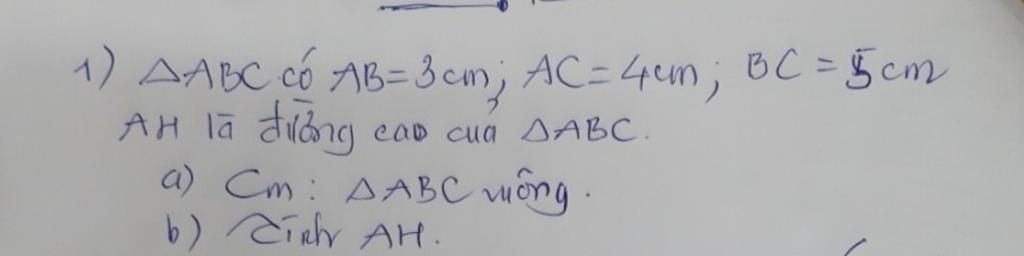 1) △ABC có AB = 3cm; AC = 4cm; BC = 5cm
AH là đường cao của △ABC.
a) Cm: △ABC vuông.
b) Tính AH.